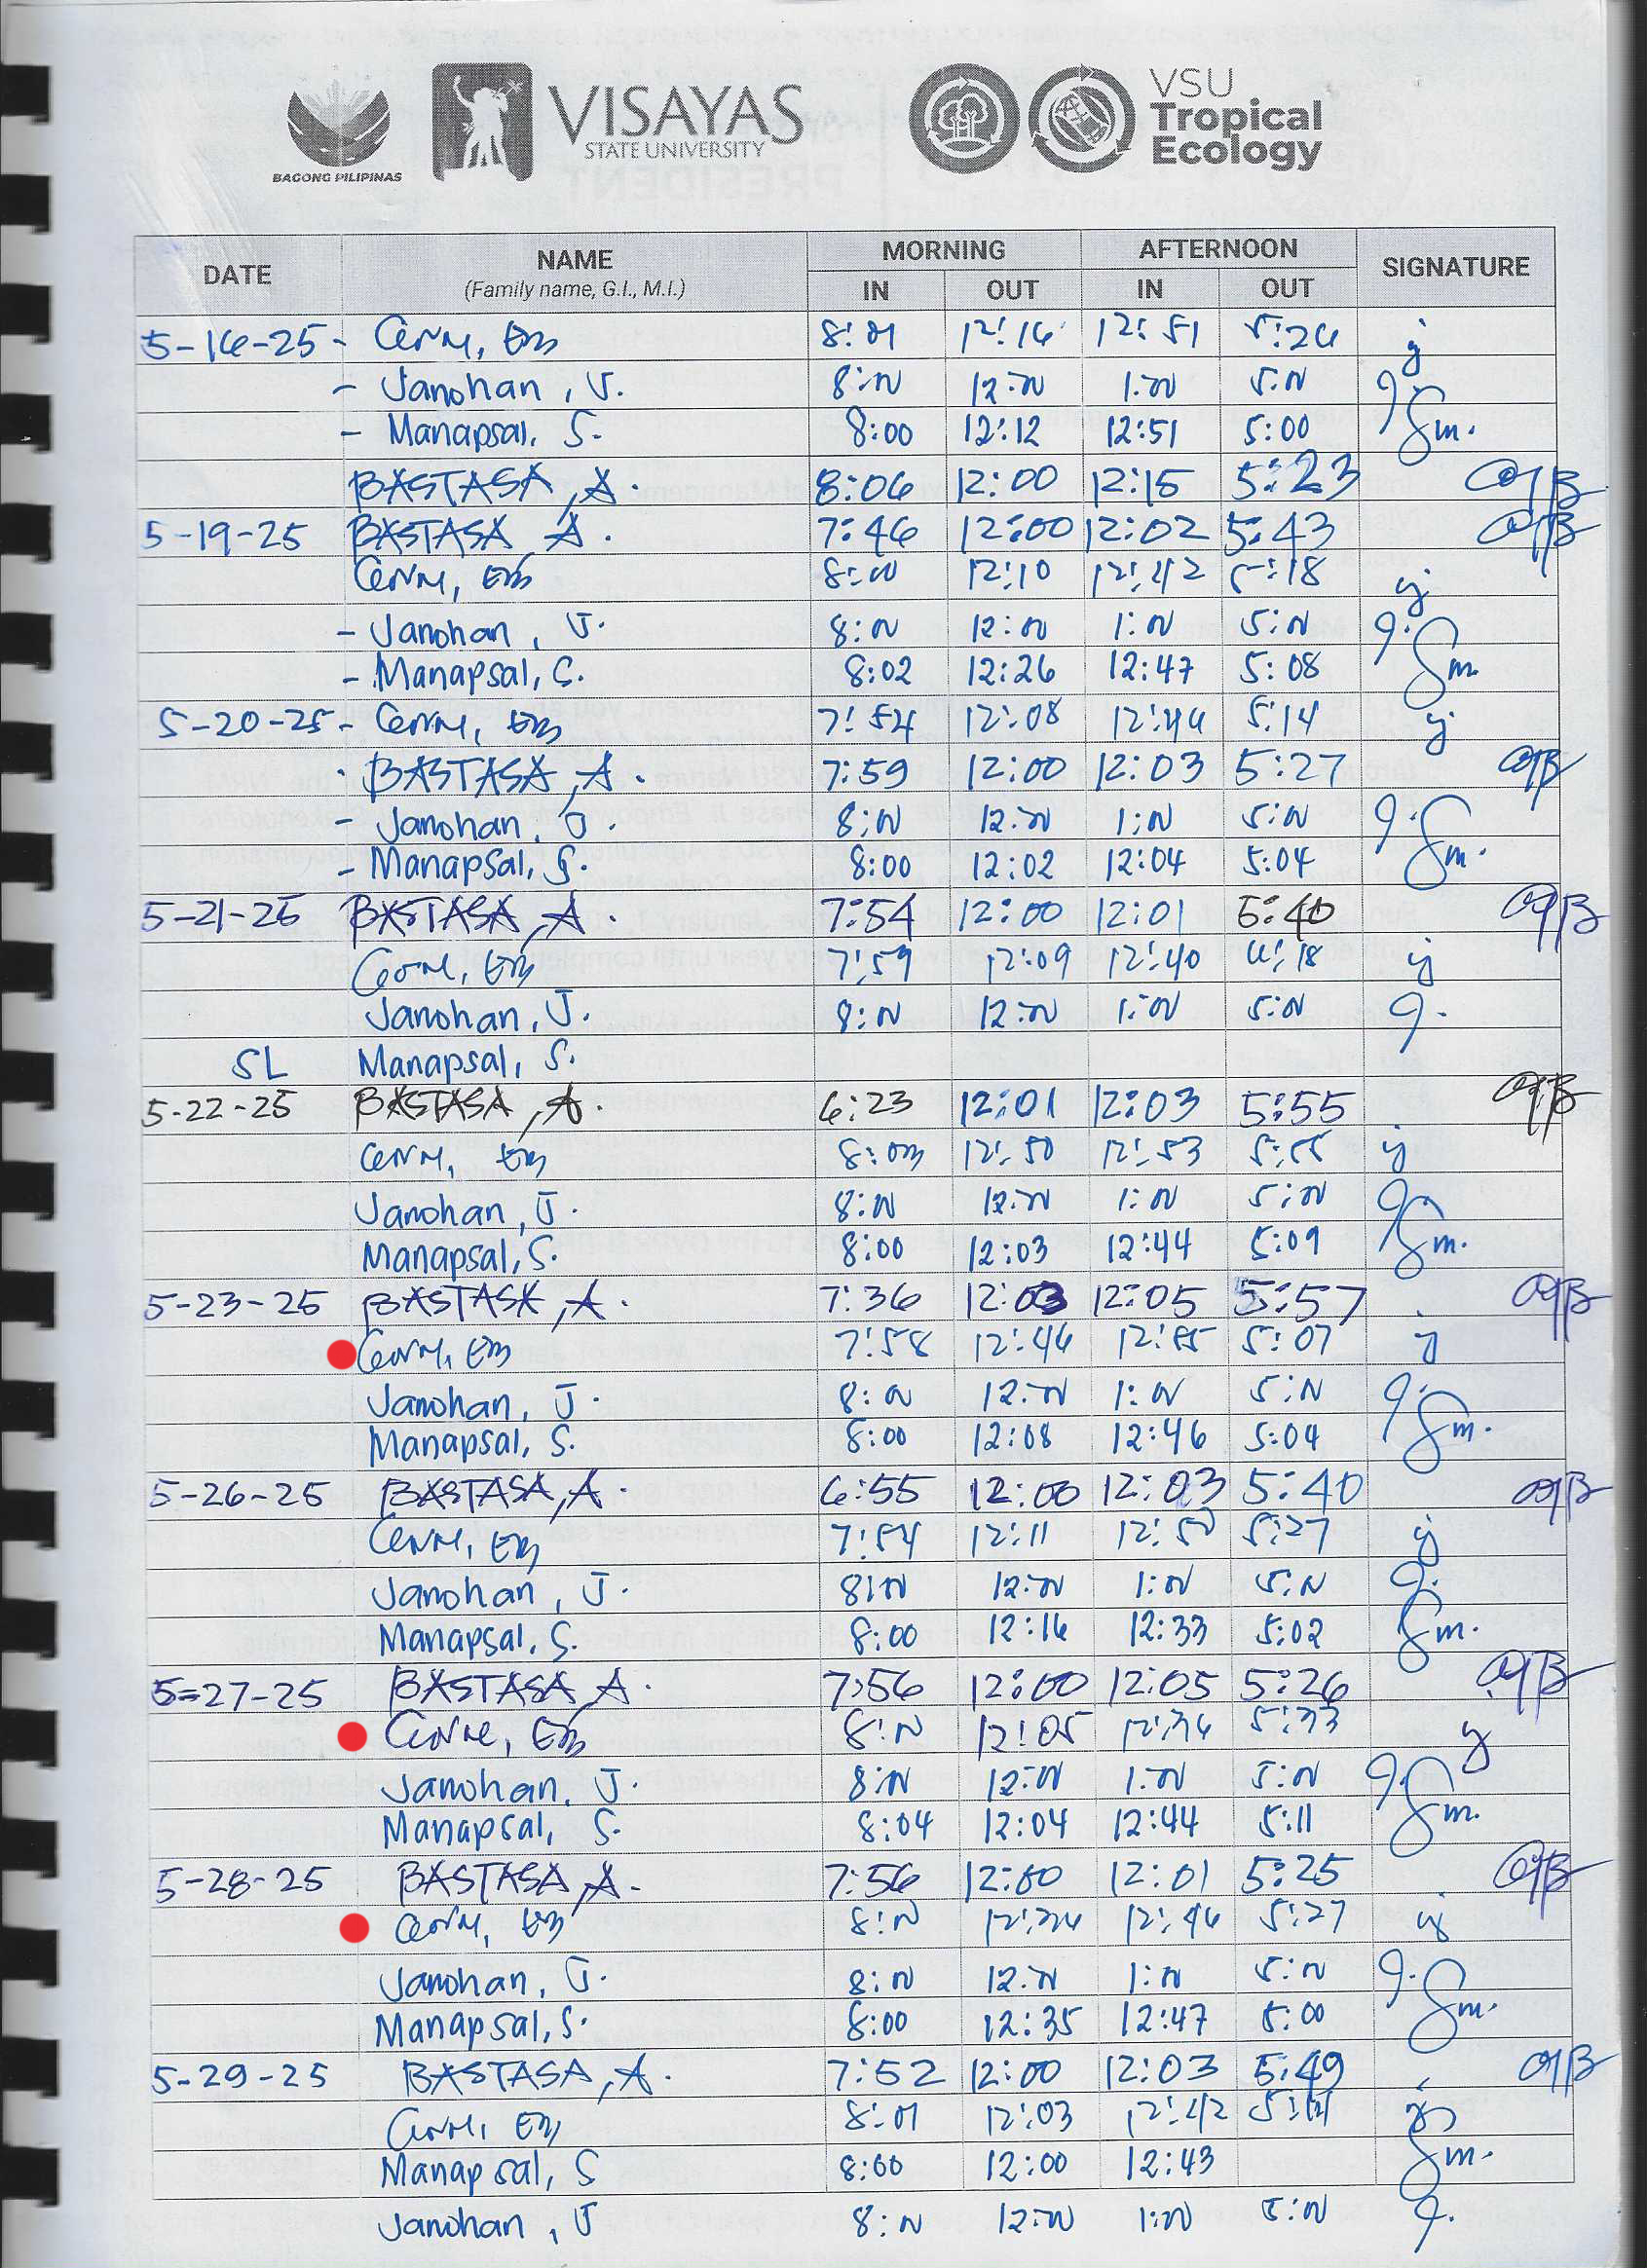 BAGONG PILIPINAS
VISAYAS
STATE UNIVERSITY
VSU
Tropical
Ecology
DATE NAME (Family name, G.I., M.I.) MORNING AFTERNOON SIGNATURE
IN OUT IN OUT
5-16-25 - 8:01 12:16 12:51 5:26
- Janohan, J. 8:00 12:00 1:00 5:00
- Manapsal, S. 8:00 12:12 12:51 5:00 Sm.
BASTASA, A. 8:06 12:00 12:15 5:23
5-19-25 BASTASA A. 7:46 12:00 12:02 5:43
8:00 12:10 12:42 5:18
- Janohan, J. 8:00 12:00 1:00 5:00
- Manapsal, S. 8:02 12:26 12:47 5:08 Sm.
5-20-25 - 7:54 12:08 12:46 5:14
BASTASA, A. 7:59 12:00 12:03 5:27
- Janohan, J. 8:00 12:00 1:00 5:00
- Manapsal, S. 8:00 12:02 12:04 5:04 Sm.
5-21-25 BASTASA, A. 7:54 12:00 12:01 5:40
7:59 12:09 12:40
Janohan, J. 8:00 12:00 1:00 5:00
SL Manapsal, S.
5-22-25 BASTASA, A. 6:23 12:01 12:03 5:55
12:50 12:53
Janohan, J. 8:00 12:00 1:00 5:00
Manapsal, S. 8:00 12:03 12:44 5:09 Sm.
5-23-25 BASTASA, A. 7:36 12:03 12:05 5:57
7:58 12:46 5:07
Janohan, J. 8:00 12:00 1:00 5:00
Manapsal, S. 8:00 12:08 12:46 5:04 Sm.
5-26-25 BASTASA, A. 6:55 12:00 12:03 5:40
7:54 12:11 12:50 5:27
Janohan, J. 8:00 12:00 1:00 5:00
Manapsal, S. 8:00 12:16 12:33 5:02 Sm.
5-27-25 BASTASA A. 7:56 12:00 12:05 5:26
8:00 12:05 12:36 5:33
Janohan, J. 8:00 12:00 1:00 5:00
Manapsal, S. 8:04 12:04 12:44 5:11 Sm.
5-28-25 BASTASA, A. 7:56 12:00 12:01 5:25
8:00 12:46 5:27
Janohan, J. 8:00 12:00 1:00 5:00
Manapsal, S. 8:00 12:35 12:47 5:00 Sm.
5-29-25 BASTASA, A. 7:52 12:00 12:03 5:49
8:01 12:03 12:42
Manapsal, S 8:00 12:00 12:43 Sm.
Janohan, J 8:00 12:00 1:00 5:00